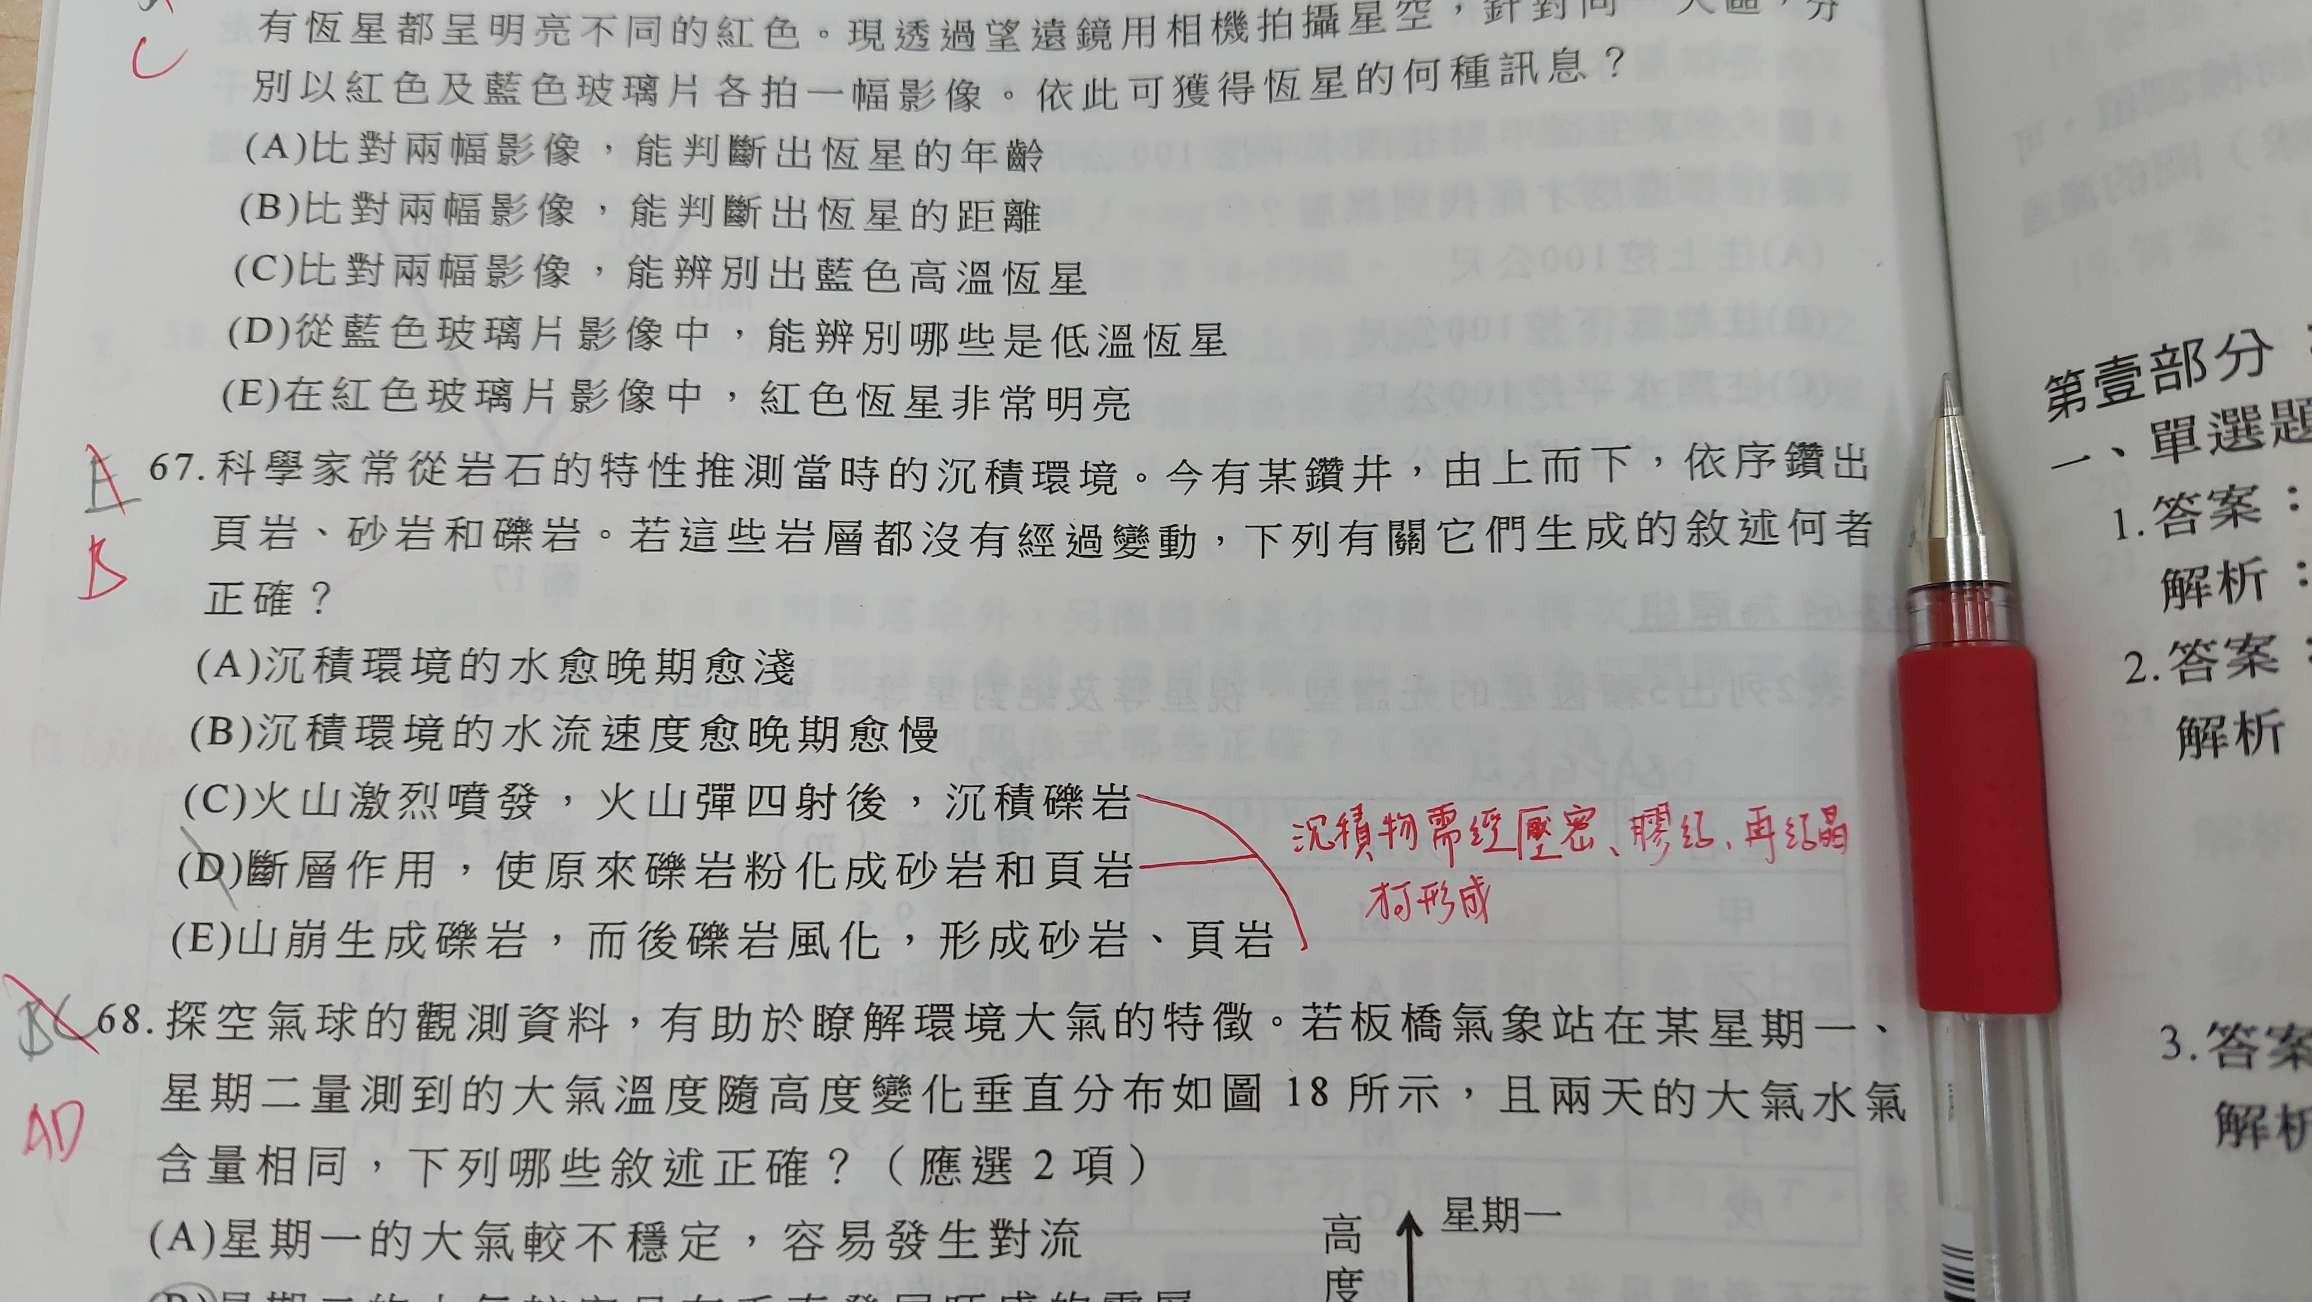 C
有恆星都呈明亮不同的紅色。現透過望遠鏡用相機拍攝星空，針對同一天區，分
別以紅色及藍色玻璃片各拍一幅影像。依此可獲得恆星的何種訊息？
(A)比對兩幅影像，能判斷出恆星的年齡
(B)比對兩幅影像，能判斷出恆星的距離
(C)比對兩幅影像，能辨別出藍色高溫恆星
(D)從藍色玻璃片影像中，能辨別哪些是低溫恆星
(E)在紅色玻璃片影像中，紅色恆星非常明亮
E
B
67.科學家常從岩石的特性推測當時的沉積環境。今有某鑽井，由上而下，依序鑽出
頁岩、砂岩和礫岩。若這些岩層都沒有經過變動，下列有關它們生成的敘述何者
正確？
(A)沉積環境的水愈晚期愈淺
(B)沉積環境的水流速度愈晚期愈慢
(C)火山激烈噴發，火山彈四射後，沉積礫岩
(D)斷層作用，使原來礫岩粉化成砂岩和頁岩
(E)山崩生成礫岩，而後礫岩風化，形成砂岩、頁岩
沉積物需經壓密、膠結、再結晶
才形成
BC
AD
68.探空氣球的觀測資料，有助於瞭解環境大氣的特徵。若板橋氣象站在某星期一、
星期二量測到的大氣溫度隨高度變化垂直分布如圖 18 所示，且兩天的大氣水氣
含量相同，下列哪些敘述正確？（應選 2 項）
(A)星期一的大氣較不穩定，容易發生對流
高度
星期一
第壹部分
一、單選題
1.答案：
解析：
2.答案：
解析
3.答案
解析